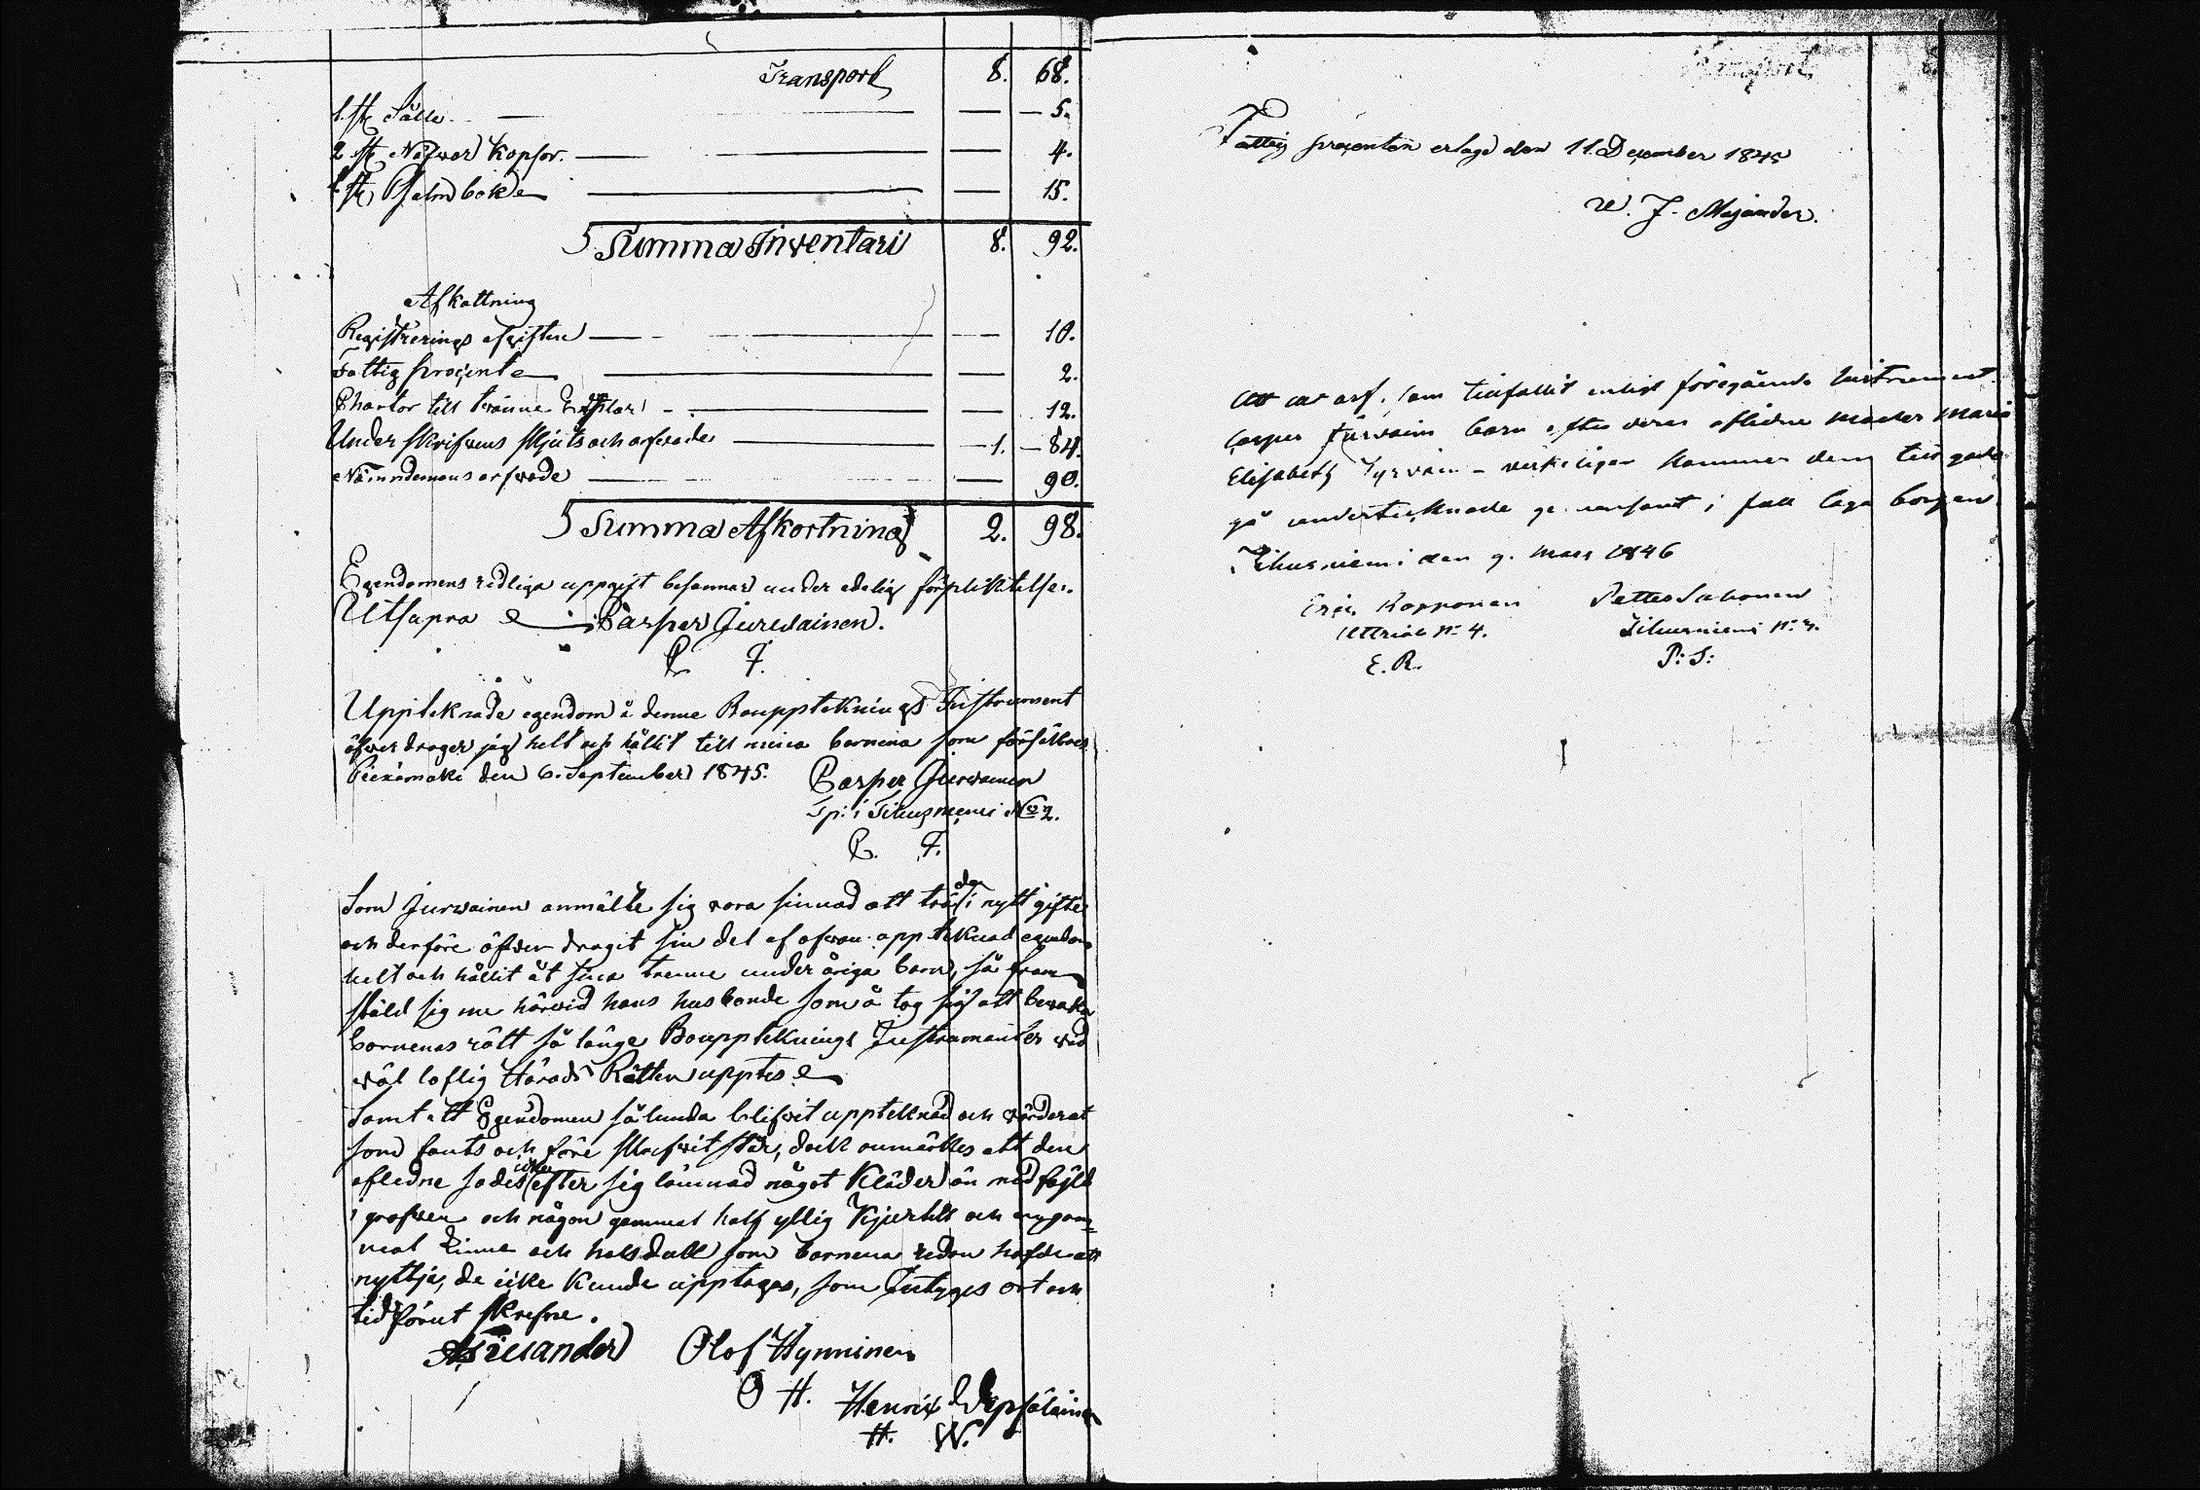 Transport 8. 68.
1. st Sålle — — 5.
2 st Näfver Kopsor. — — 4.
1. st Psalmbok — — 15.
Summa Inventari 8. 92.
Afkottning
Registrerings afgiften — — 10.
Fattig procent — — 2.
Chartor till tvänne — — 12.
Underskrifvens skjuts och arfvode — 1. — 84.
Nämndemans arfvode — — 90.
Summa Afkortning 2. 98.
Egendomens redliga uppgift besannas under edelig förpliktelse.
Utsupra Casper Jurvainen.
C J.
Uppteknade egendom i denne Bouppteknings Instrument
öfverdrager jag helt och hållit till mina barnena som försäkras
Piexämäki den 6. September 1845. Casper Jurvainen
Tp: i Tihusniemi No 2.
C. J.
Som Jurvainen anmälte sig vara sinnad att träda i nytt gifte
och derföre öfver dragit sin del af ofvan uppteknad egendom
helt och hållit åt sina trenne under åriga barn, så fram
stäld sig nu härvid hans husbonde som å tog sig att bevaka
barnenas rätt så länge Bouppteknings Instrumentet vid
väl loflig Härads Rätten upptes
Samt att Egendomen sålunda blifvit uppteknad och värderat
som fants och före skrifvit står, dock anmärktes att den
afledne icke efter sig lämnad något Kläder än medföljd
i grafven och någon gammal half yllig Kjortel och en gam=
mal och halsduk som barnena redan hafde att
nyttja, de icke kunde upptagas, som Intyges ort och
tid förut skrefne.
Olof Hynninen
O H. Henrik
H. W.
Transport
Fattig procenten erlagd den 11. December 1845
W. J. Majander.
Att det arf, som tillfallit enligt föregående Instrument
Casper Jurvains barn efter deras aflidne moder Maria
Elisabeth - verkeligen kommer dem till godo
gå undertecknade i fall laga borgen.
Tihusniemi den 9. Mars 1846
Eric Kopponen Petter Suhonen
No 4. Tihusniemi No
E. R. P: S: